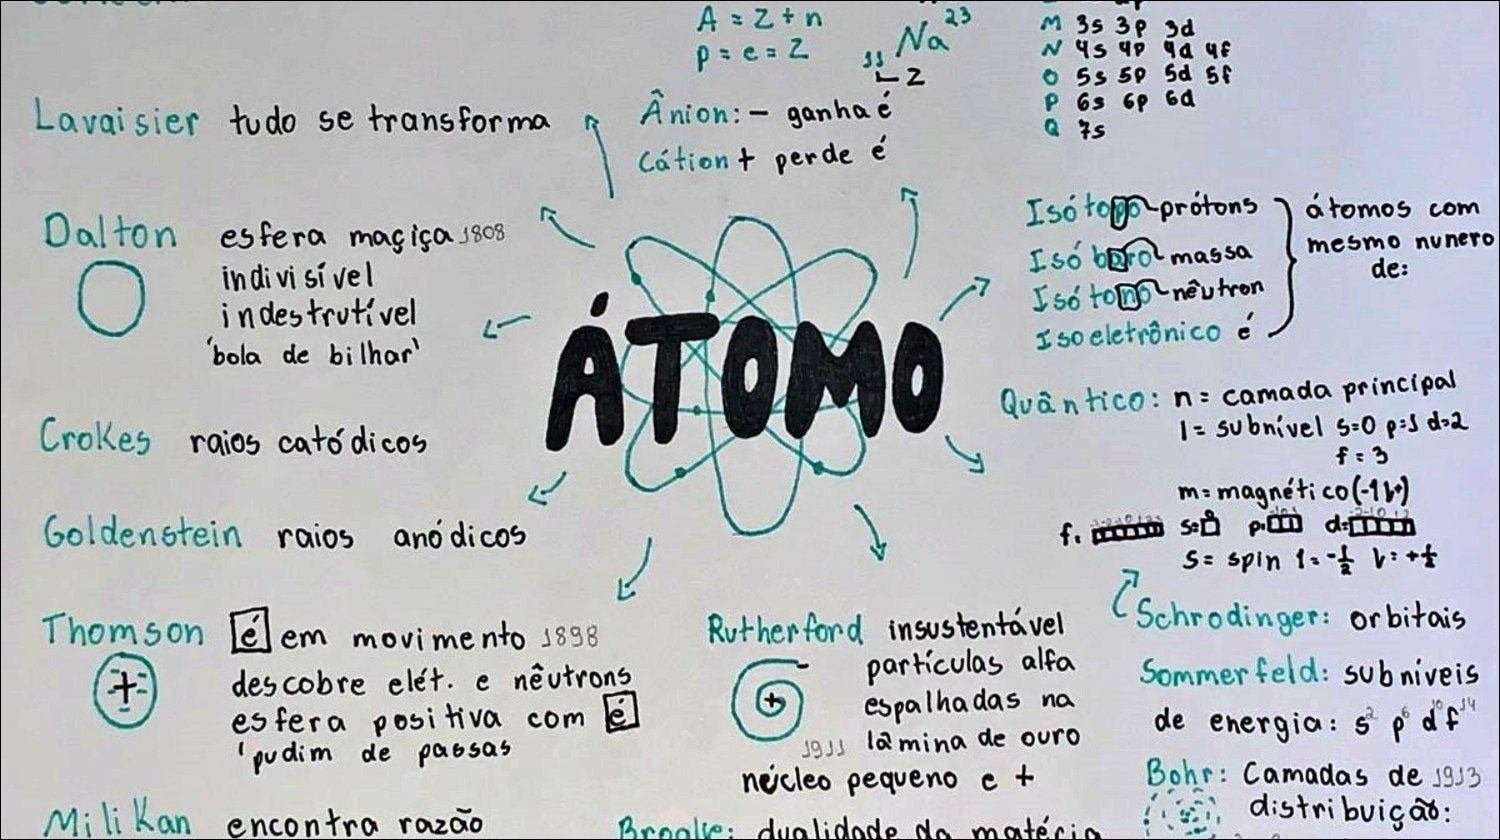 A = Z + n
p = e = Z
11 Na 23
Z
M 3s 3p 3d
N 4s 4p 4d 4f
O 5s 5p 5d 5f
P 6s 6p 6d
Q 7s
Lavaisier tudo se transforma
Ânion: - ganha é
Cátion + perde é
Dalton esfera maçiça 1808
indivisível
indestrutível
'bola de bilhar'
Isótopo prótons
Isóbaro massa
Isótono nêutron
Isoeletrônico é
átomos com
mesmo nunero
de:
ÁTOMO
Crokes raios catódicos
Goldenstein raios anódicos
Quântico: n = camada principal
l = subnível s=0 p=1 d=2
f = 3
m = magnético
f: s= p= d=
s = spin ↑ = -½ ↓ = +½
Thomson é em movimento 1898
descobre elét. e nêutrons
esfera positiva com é
'pudim de passas
+
Rutherford insustentável
partículas alfa
espalhadas na
1911 lâmina de ouro
núcleo pequeno e +
Schrodinger: orbitais
Sommerfeld: subníveis
de energia: s² p⁶ d¹⁰ f¹⁴
Bohr: Camadas de 1913
distribuição:
Milikan encontra razão
Broglie: dualidade da matéria